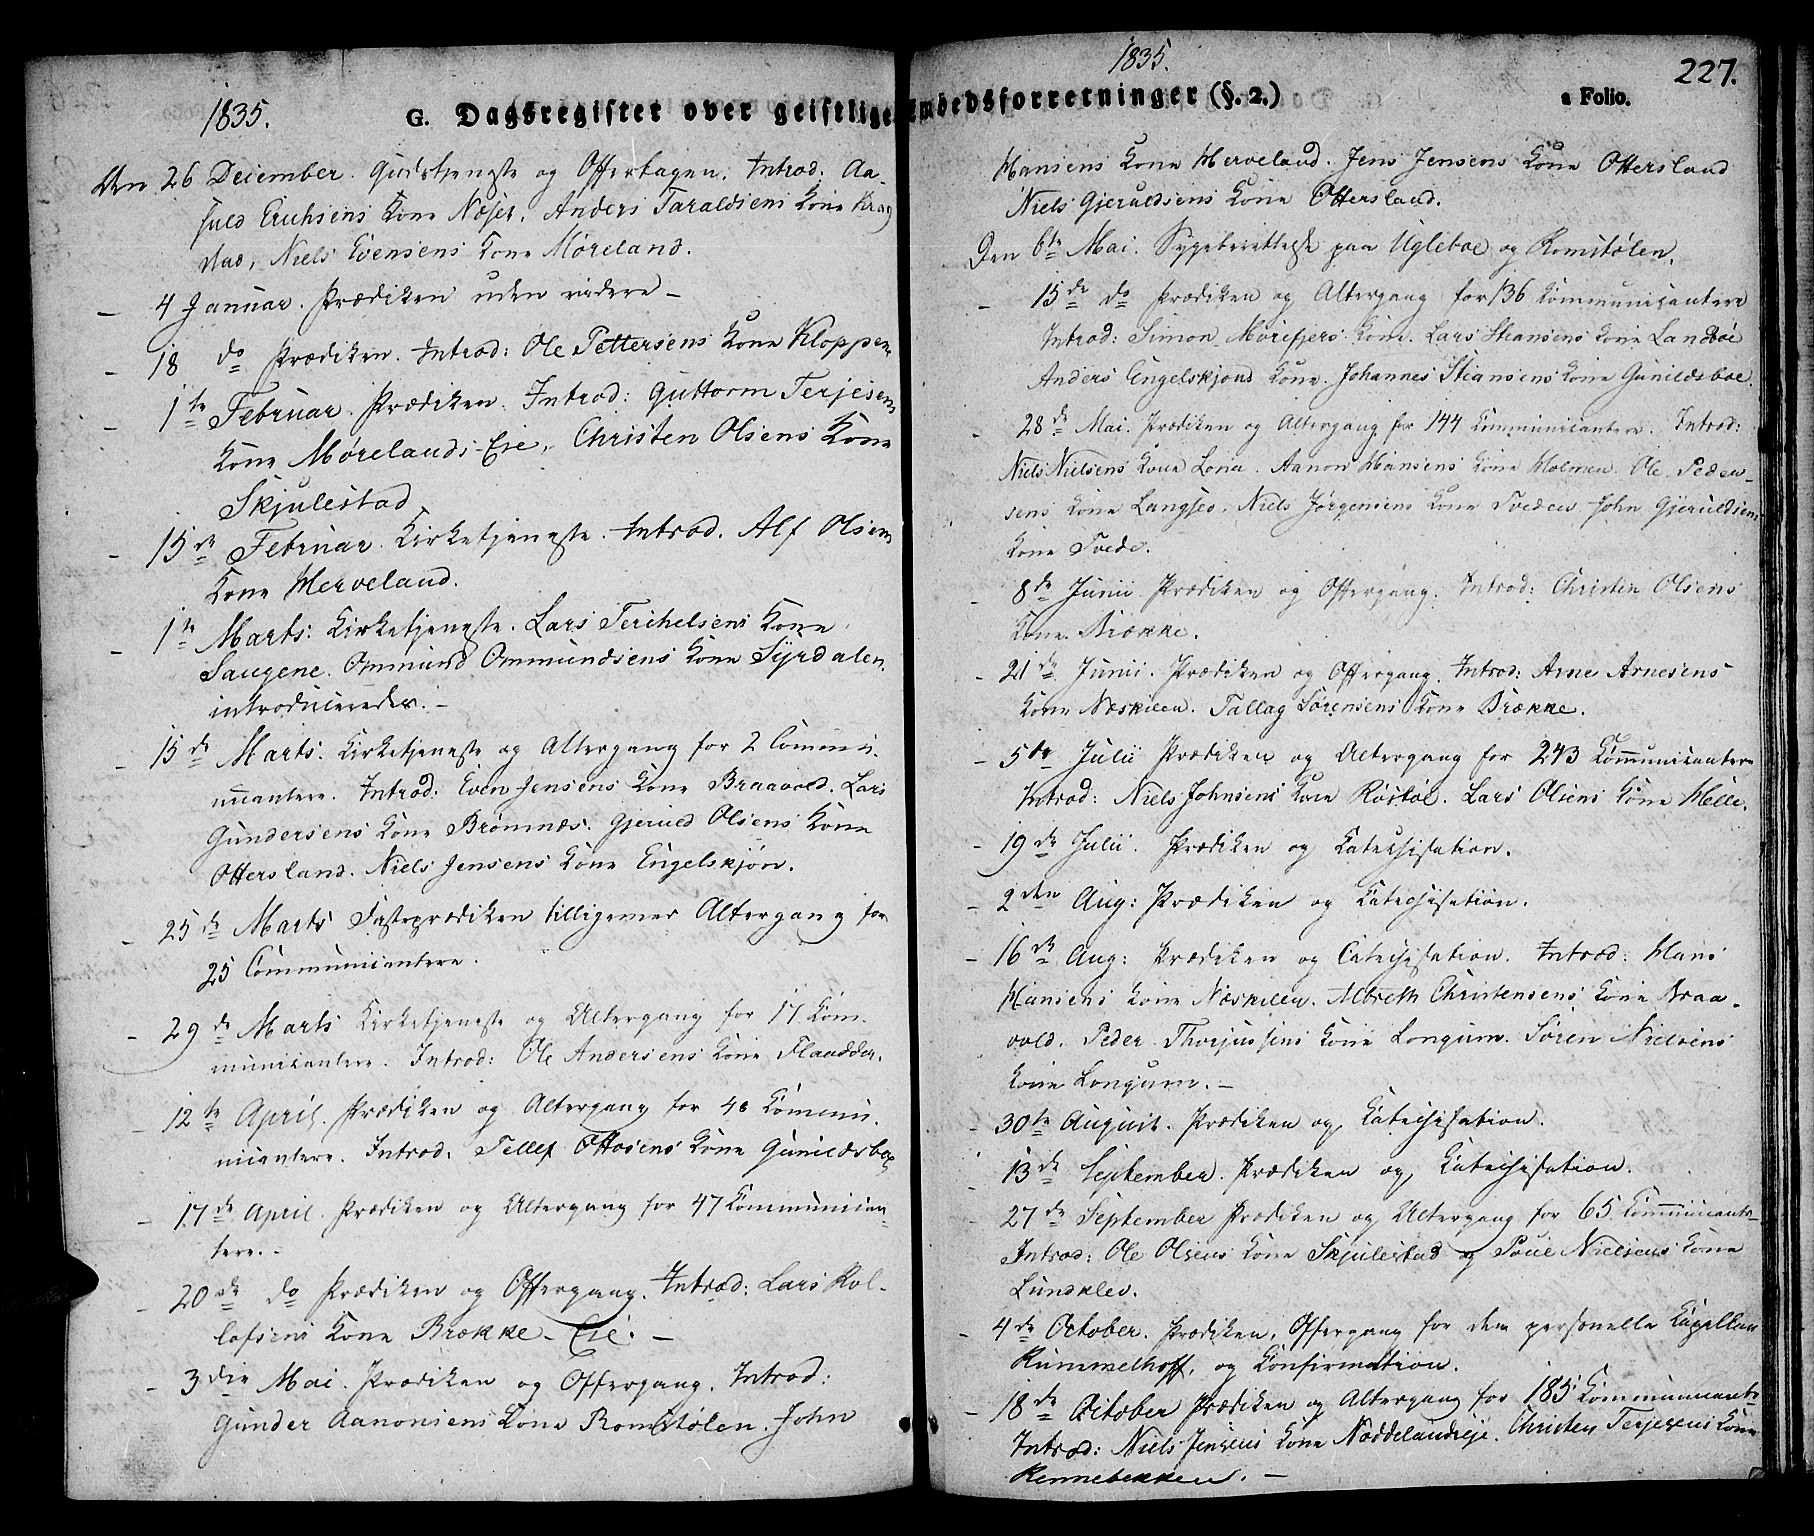 1835.
G. Dagsregister over geistlige
Den 26 December. Gudstjeneste og Offertagen. Introd. Aa-
suld Erichsens Kone Næset. Anders Taraldsens Kone Krag
stad, Niels Evensens Kone Møreland.
– 4 Januar. Prædiken uden videre –
– 18 do Prædiken. Introd: Ole Pettersens Kone Kloppen.
– 1te Februar. Prædiken. Introd: Guttorm Terjesens
Kone Mørelands-Eie. Christen Olsens Kone
Skjulestad
– 15de Februar. Kirketjeneste. Introd. Alf Olsens
Kone Herveland.
– 1te Marts: Kirketjeneste. Lars Terchelsens Kone
Saugene. Ommund Ommundsens Kone Syrdalen
introduceredes. –
– 15de Marts. Kirketjeneste og Altergang for 2 Commu-
nicantere. Introd: Even Jensens Kone Braavold. Lars
Gundersens Kone Brømnæs. Gjerued Olsens Kone
Ottersland. Niels Jensens Kone Engelskjøn.
– 25de Marts Fasteprædiken tilligemed Altergang for
25 Communicantere.
– 29de Marts Kirketjeneste og Altergang for 17 Com-
municantere. Introd: Ole Andersens Kone Flaadder.
– 12te April. Prædiken og Altergang for 48 Commu-
nicantere. Introd. Tellef Ottosens Kone Gunildsboe
– 17de April. Prædiken og Altergang for 47 Communican-
tere. –
– 20de do Prædiken og Offergang. Introd: Lars Rol-
lofsens Kone Brække-Eie. –
– 3die Mai. Prædiken og Offergang. Introd:
Gunder Aanonsens Kone Romstølen. John
1835.
227.
Embedsforretninger (§. 2.)
a Folio.
Hansens Kone Herveland. Jens Jensens Kone Ottersland
Niels Gjeruldsens Kone Ottersland.
Den 6te Mai. Sygeberettelse paa Ugleboe og Romstølen.
– 15de do Prædiken og Altergang for 136 Communicantere
Introd: Simon Mørefjers Kone. Lars Stiansens Kone Landbøe
Anders Engelskjøns Kone. Johannes Stiansens Kone Gunildsboe.
– 28de Mai. Prædiken og Altergang for 144 Communicantere. Introd:
Niels Nielsens Kone Lona. Aanon Hansens Kone Holmen. Ole Peder-
sens Kone Langsev. Niels Jørgensens Kone Tveden John Gjeruldsens
Kone Tvede.
– 8de Junii Prædiken og Offergang. Introd: Christen Olsens
Kone Brække.
– 21de Junii. Prædiken og Offergang. Introd: Arne Arnesens
Kone Næskilen. Tallag Sørensens Kone Brække.
– 5te Julii Prædiken og Altergang for 243 Communicantere
Introd: Niels Johnsens Kone Røstøl. Lars Olsens Kone Helle.
– 19de Julii. Prædiken og Catechisation.
– 2den Aug: Prædiken og Catechisation.
– 16de Aug: Prædiken og Catechisation. Introd: Hans
Hansens Kone Næskilen. Albreth Christensens Kone Braa-
vold. Peder Thorjussens Kone Longum. Søren Nielsens
Kone Longum. –
– 30te August. Prædiken og Catechisation.
– 13de September. Prædiken og Catechisation.
– 27de September Prædiken og Altergang for 65 Communicante
Introd: Ole Olsens Kone Skjulestad og Poul Nielsens Kone
Lundklev.
– 4de October. Prædiken, Offergang for den personelle Capellan
Rummelhoff, og Confirmation.
– 18de October Prædiken og Altergang for 185 Communicante
Introd: Niels Jensens Kone Noddelandseje. Christen Terjesens Kone
Rennebekken. –